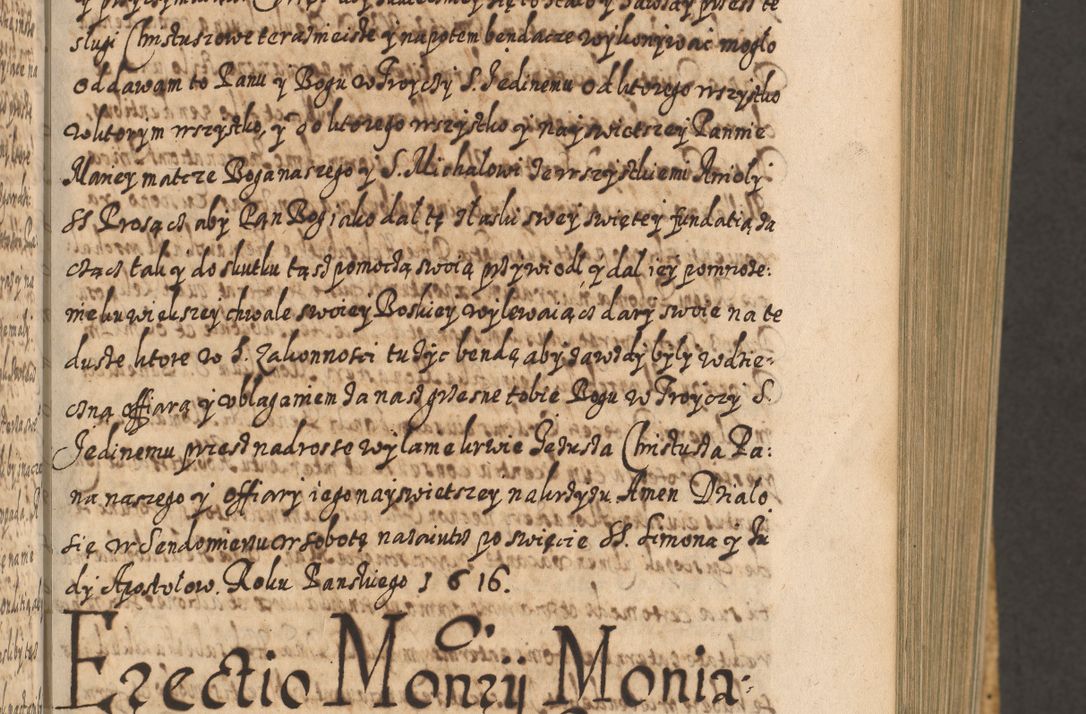 slugi Christusowe terasnieiste y napotem bendacze wykonywać moglo
oddawam to Panu y Bogu w Troyczy S. Jedinemu od ktorego wszystko
w ktorym wszystko, y do ktorego wszystko y nayswietszey Pannie
Mariey matcze Boga naszego y S. Michalowi ze wszystkiemi Anioly
SS Prosącz aby Pan Bog iako dal tę z laski swey swiętey fundatią za
czącz tak y do skutku tąsz pomoczą swoią przywiodl y dal iey pomnoże:
nie ku wiekszey chwale swoiey Boskiey wylewaiącz dary swoie na te
dusze ktore w S. Zakonnosci tu życ bendą aby zawzdy byly wdzie-
czną offiarą y vblaganiem za nasz grzesne tobie Bogu w Troyczy S.
Jedinemu przesz nadrosse wylanie krwie Jezusa Christusa Pa:
na naszego y offiary iego nayswietszey na krzyzu Amen Dzialo
się w Sendomierzu w sobotę nazaiutrz po swięcie SS. Simona y Ju
dy Apostolow. Roku Panskiego 1616.
Erectio Monrÿ Monia-